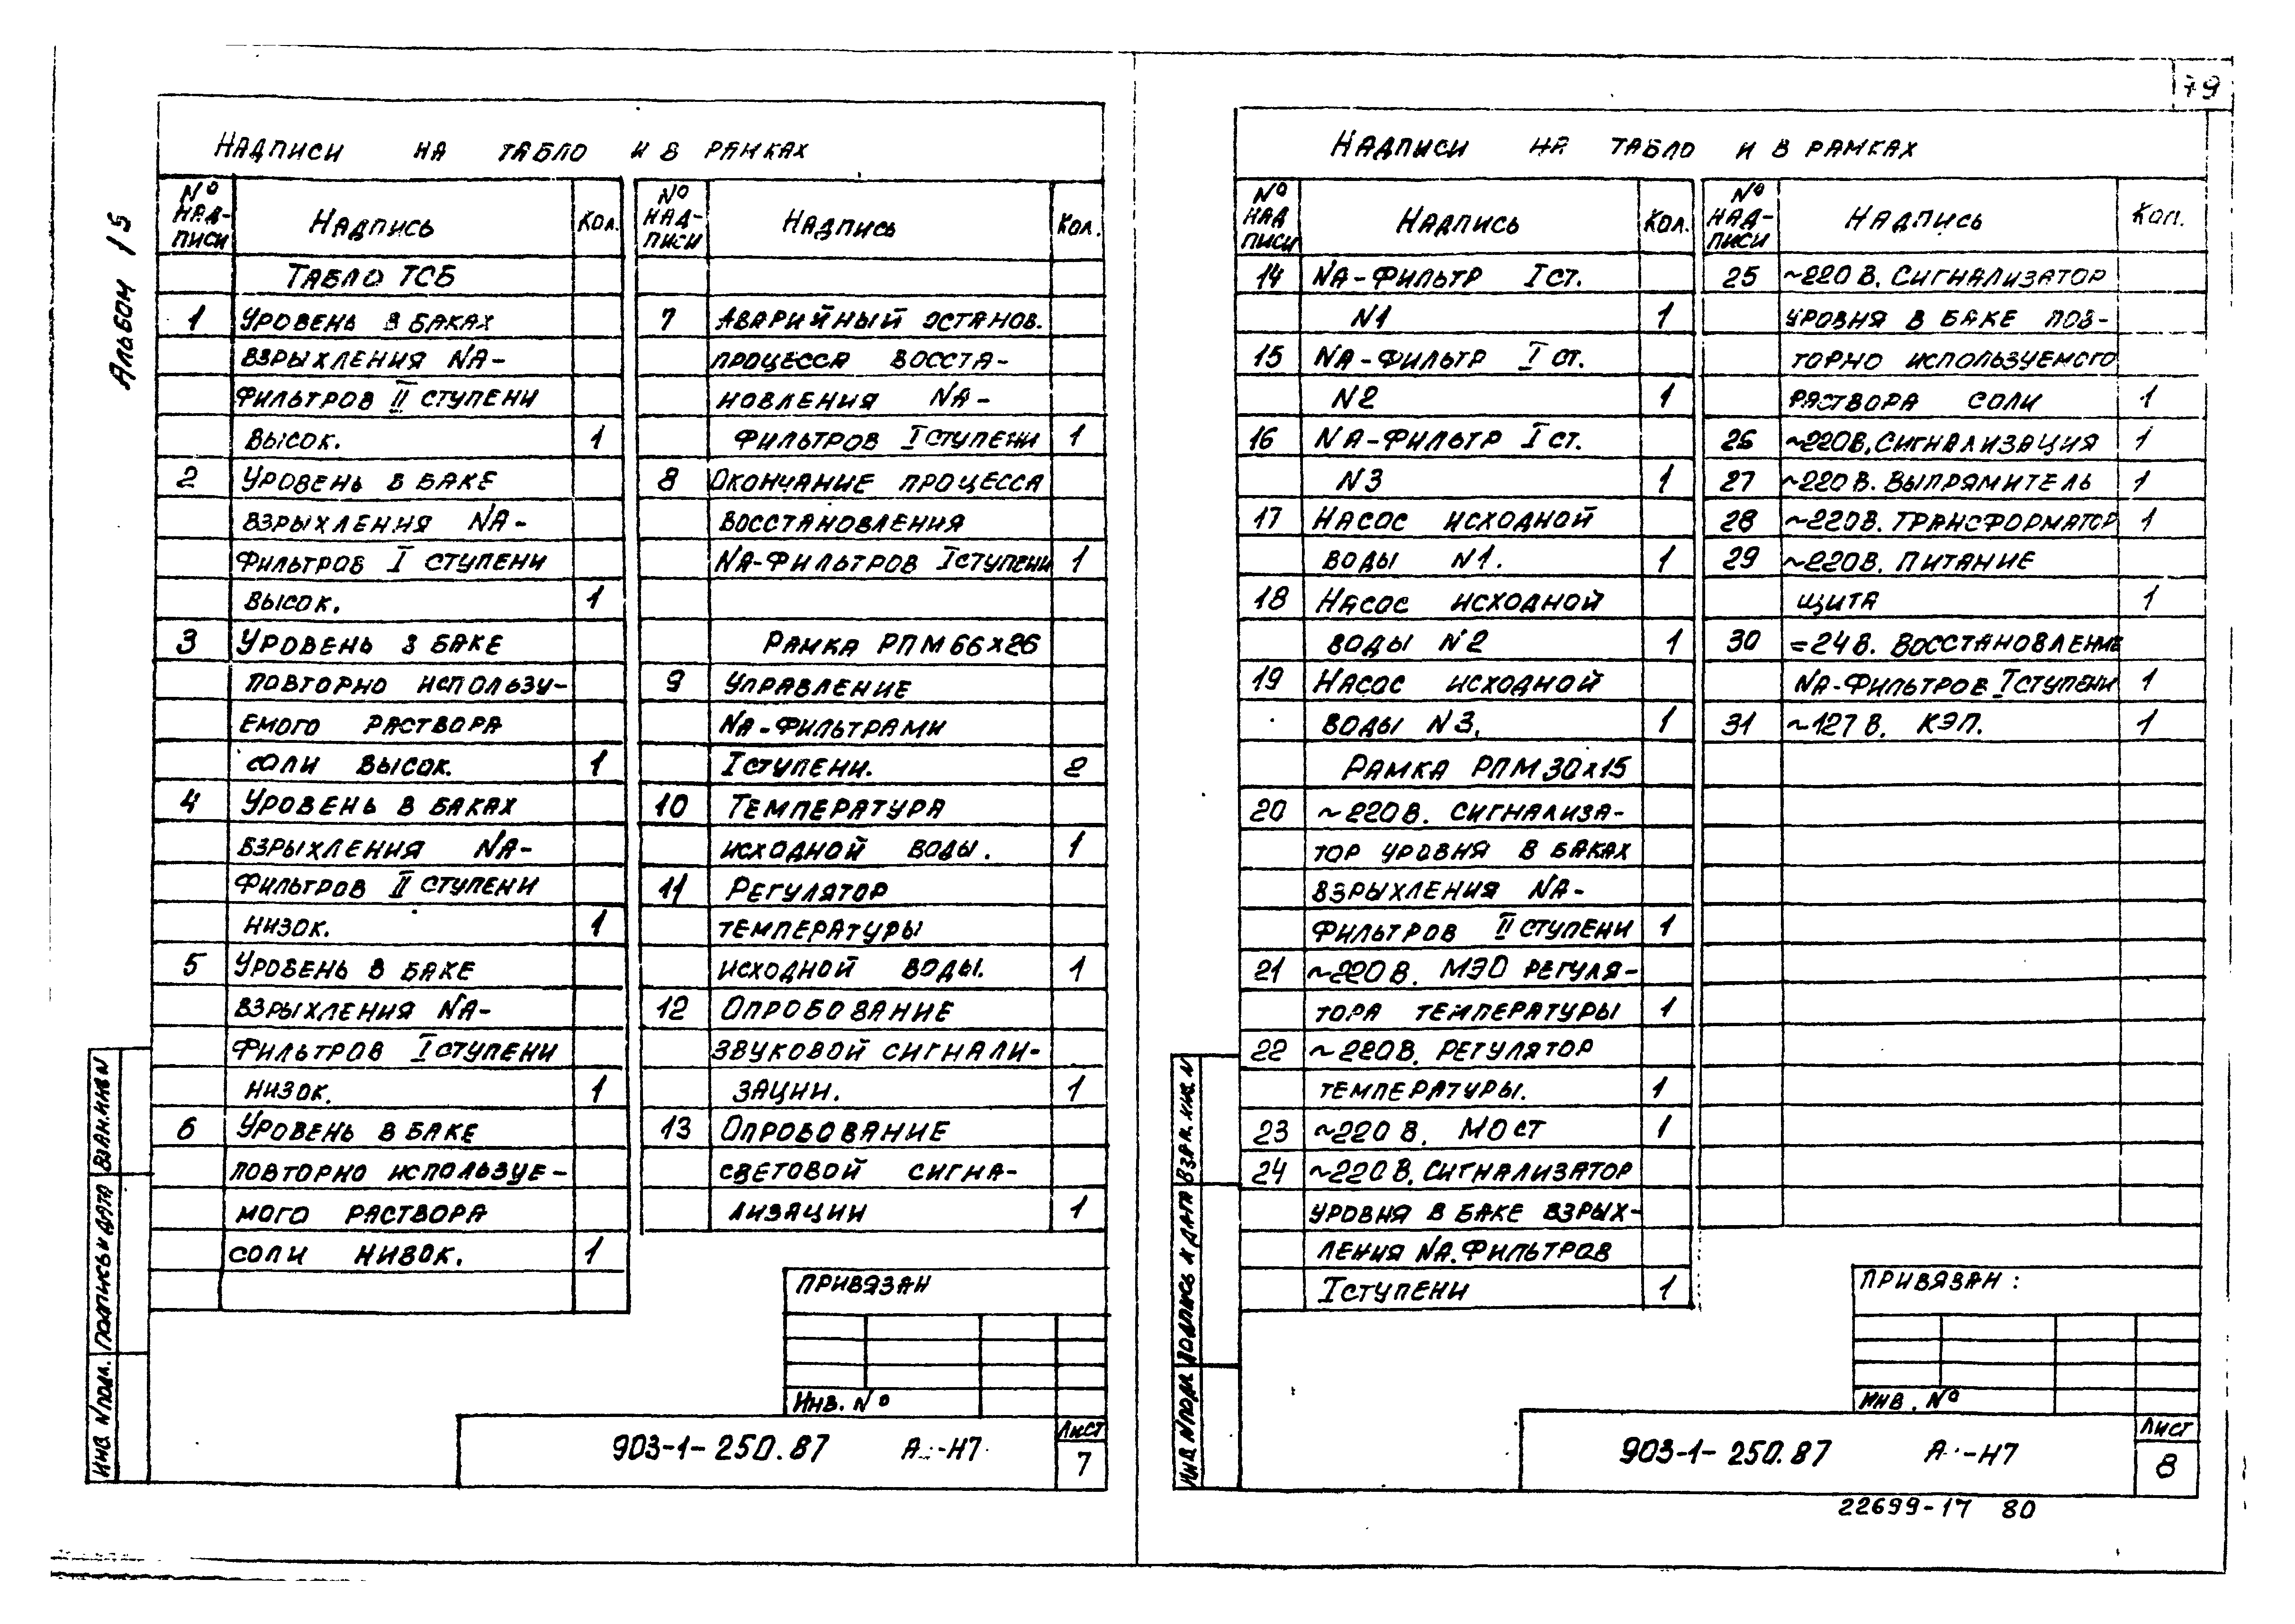 79
Альбом 15
Надписи на табло и в рамках
№ над-писи Надпись Кол.
Табло ТСБ
1 Уровень в баках
взрыхления Na-
фильтров II ступени
высок. 1
2 Уровень в баке
взрыхления Na-
фильтров I ступени
высок. 1
3 Уровень в баке
повторно использу-
емого раствора
соли высок. 1
4 Уровень в баках
взрыхления Na-
фильтров II ступени
низок. 1
5 Уровень в баке
взрыхления Na-
фильтров I ступени
низок. 1
6 Уровень в баке
повторно используе-
мого раствора
соли низок. 1
№ над-писи Надпись Кол.
7 Аварийный останов.
процесса восста-
новления Na-
фильтров I ступени 1
8 Окончание процесса
восстановления
Na-фильтров I ступени 1
Рамка РПМ 66х26
9 Управление
Na-фильтрами
I ступени. 2
10 Температура
исходной воды. 1
11 Регулятор
температуры
исходной воды. 1
12 Опробование
звуковой сигнали-
зации. 1
13 Опробование
световой сигна-
лизации 1
Привязан
Инв. №
903-1-250.87 А -Н7
Лист
7
Инв. N подл. Подпись и дата Взам. инв N
Надписи на табло и в рамках
№ над писи Надпись Кол.
14 Na-фильтр I ст.
N1 1
15 Na-фильтр I ст.
N2 1
16 Na-фильтр I ст.
N3 1
17 Насос исходной
воды N1. 1
18 Насос исходной
воды N2 1
19 Насос исходной
воды N3. 1
Рамка РПМ 30х15
20 ~220 в. сигнализа-
тор уровня в баках
взрыхления Na-
фильтров II ступени 1
21 ~220 в. МЭО регуля-
тора температуры 1
22 ~220 в. регулятор
температуры. 1
23 ~220 в. мост 1
24 ~220 в. сигнализатор
уровня в баке взрых-
ления Na. фильтров
I ступени 1
№ над-писи Надпись Кол.
25 ~220 в. Сигнализатор
уровня в баке пов-
торно используемого
раствора соли 1
26 ~220в. Сигнализация 1
27 ~220 в. Выпрямитель 1
28 ~220в. трансформатор 1
29 ~220в. Питание
щита 1
30 =24 в. Восстановление
Na-фильтров I ступени 1
31 ~127 в. КЭП. 1
Привязан:
Инв. №
903-1-250.87 А -Н7
Лист
8
Инв. N подл. Подпись и дата Взам. инв. N
22699-17 80